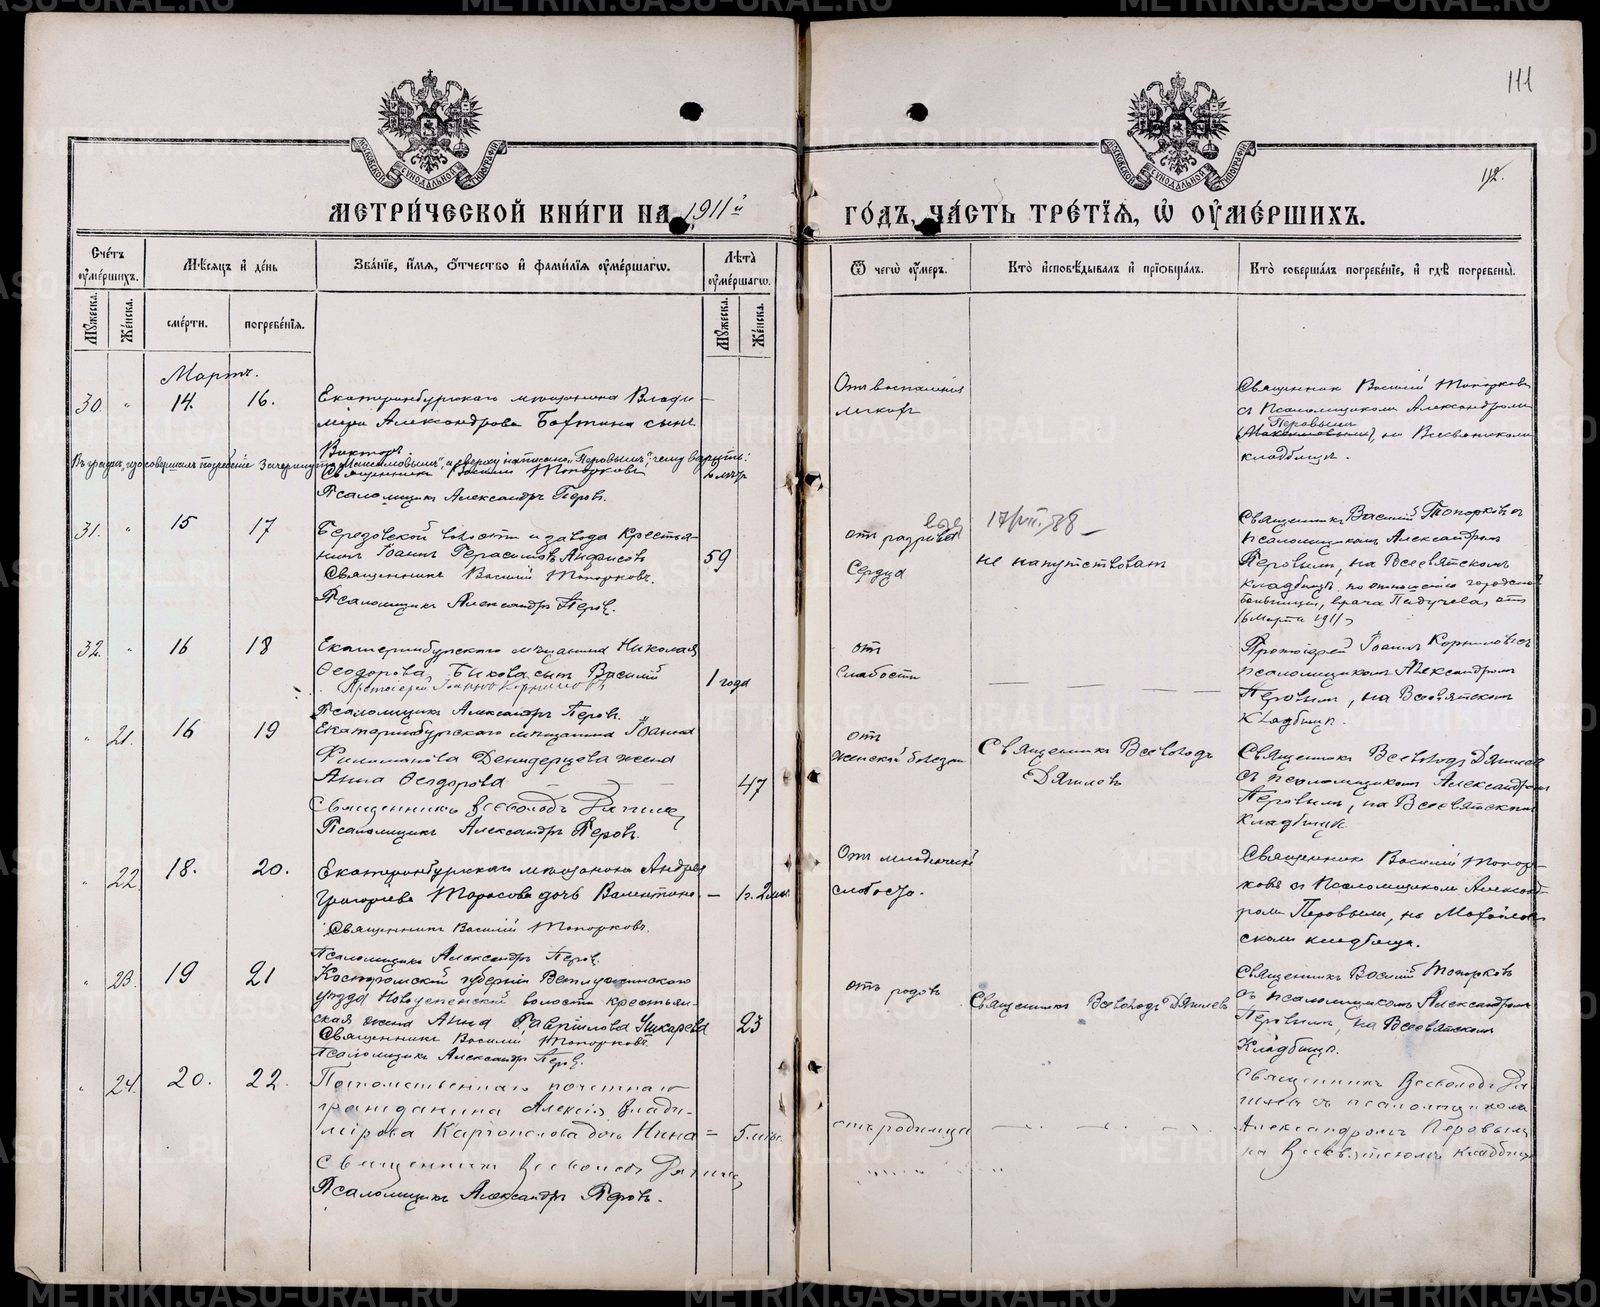 111
112.
МЕТРИ́ЧЕСКОЙ КНИ́ГИ НА 1911й ГО́ДЪ, ЧА́СТЬ ТРЕ́ТЇѦ, Ѡ҆ ОУ҆МЕ́РШИХЪ.
МОСКОВСКОЙ СУНОДАЛЬНОЙ ТИПОГРАФІИ
МОСКОВСКОЙ СУНОДАЛЬНОЙ ТИПОГРАФІИ
Сче́тъ оуме́ршихъ.
Мꙋ́жеска.
Же́нска.
Мѣ́сяцъ и де́нь
сме́рти.
погребе́нїя.
Зва́нїе, и́мя, о́тчество и фами́лїя оуме́ршагѡ.
Лѣ́та оуме́ршагѡ.
Мꙋ́жеска.
Же́нска.
Ѿ чегѡ̀ оу́меръ.
Кто̀ исповѣ́дывалъ и прїѡбща́лъ.
Кто̀ соверша́лъ погребе́нїе, и гдѣ̀ погребены̀.
Мартъ.
30 " 14. 16.
Екатеринбургскаго мѣщанина Влади-
мира Александрова Бабкина сынъ
Викторъ
Священникъ Василій Топорковъ
Псаломщикъ Александръ Перов.
Отъ воспаленія
легкихъ
Священник Василій Топорковъ
съ Псаломщиком Александром
Перовым
(Максимовым), на Всесвятском
кладбищѣ.
31. " 15 17
Березовской волости и завода Крестья-
нинъ Іоаннъ Герасимовъ
Священникъ Василій Топорковъ.
Псаломщикъ Александръ Перов.
59
отъ разрыва
Сердца
не напутствованъ
Священникъ Василій Топорковъ съ
псаломщикомъ Александромъ
Перовымъ, на Всесвятскомъ
кладбищѣ, по отношенію городской
больницы, врача Падучева, отъ
16 марта 1911 г
32. " 16 18
Екатеринбургскаго мѣщанина Николая
Ѳеодорова Быкова сынъ Василій
Протоіерей Іоаннъ Корниловъ
Псаломщикъ Александръ Перов.
1 года
отъ
Слабости
Протоіерей Іоаннъ Корниловъ съ
псаломщикомъ Александромъ
Перовымъ, на Всесвятскомъ
Кладбищѣ.
" 21. 16 19
Екатеринбургскаго мѣщанина Іоанна
Денидерцева жена
Анна Ѳеодорова
Священникъ Всеволодъ Дягилев
Псаломщикъ Александръ Перовъ.
47
отъ
женской болезни
Священникъ Всеволодъ
Дягилевъ
Священникъ Всеволодъ Дягилев
съ псаломщикомъ Александромъ
Перовымъ, на Всесвятском
кладбищѣ.
" 22. 18. 20.
Екатеринбургскаго мѣщанина Андрея
Григорьева Тарасова дочь Валентина.
Священникъ Василій Топорковъ.
Псаломщикъ Александръ Перов.
1г. 2мѣс.
Отъ младенческой
слабости.
Священник Василій Топор-
ковъ съ Псаломщиком Александ-
ром Перовым, на Михайлов-
ском кладбищѣ.
" 23. 19 21
Костромской губерніи Ветлужскаго
уѣзда Новоуспенской волости крестьян-
ская жена Анна Гавріилова Ушкарева
Священникъ Василій Топорковъ
Псаломщикъ Александръ Перов.
23
отъ родовъ
Священникъ Всеволодъ Дягилевъ
Священникъ Василій Топорковъ
съ псаломщикомъ Александромъ
Перовымъ, на Всесвятскомъ
Кладбищѣ.
" 24. 20. 22.
Потомственнаго почетнаго
гражданина Алексія Влади-
мірова Карпослова дочь Нина
Священникъ Всеволодъ Дягилев
Псаломщикъ Александръ Перовъ.
5 мѣс.
отъ родимца
Священникъ Всеволодъ Дя-
гилевъ съ псаломщикомъ
Александромъ Перовымъ
на Всесвятскомъ кладбищѣ
METRIKI.GASO-URAL.RU